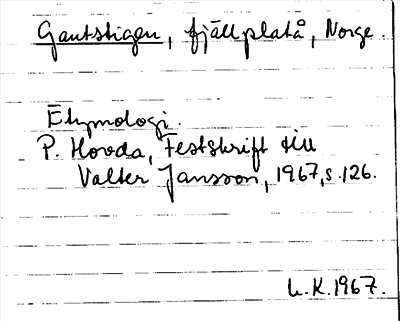 Gautstigen, fjällplatå, Norge.
Etymologi.
P. Hovda, Festskrift till
Valter Jansson, 1967, s. 126.
L.K. 1967.